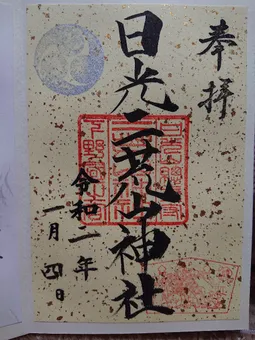 奉拝
日光二荒山神社
令和二年
一月四日